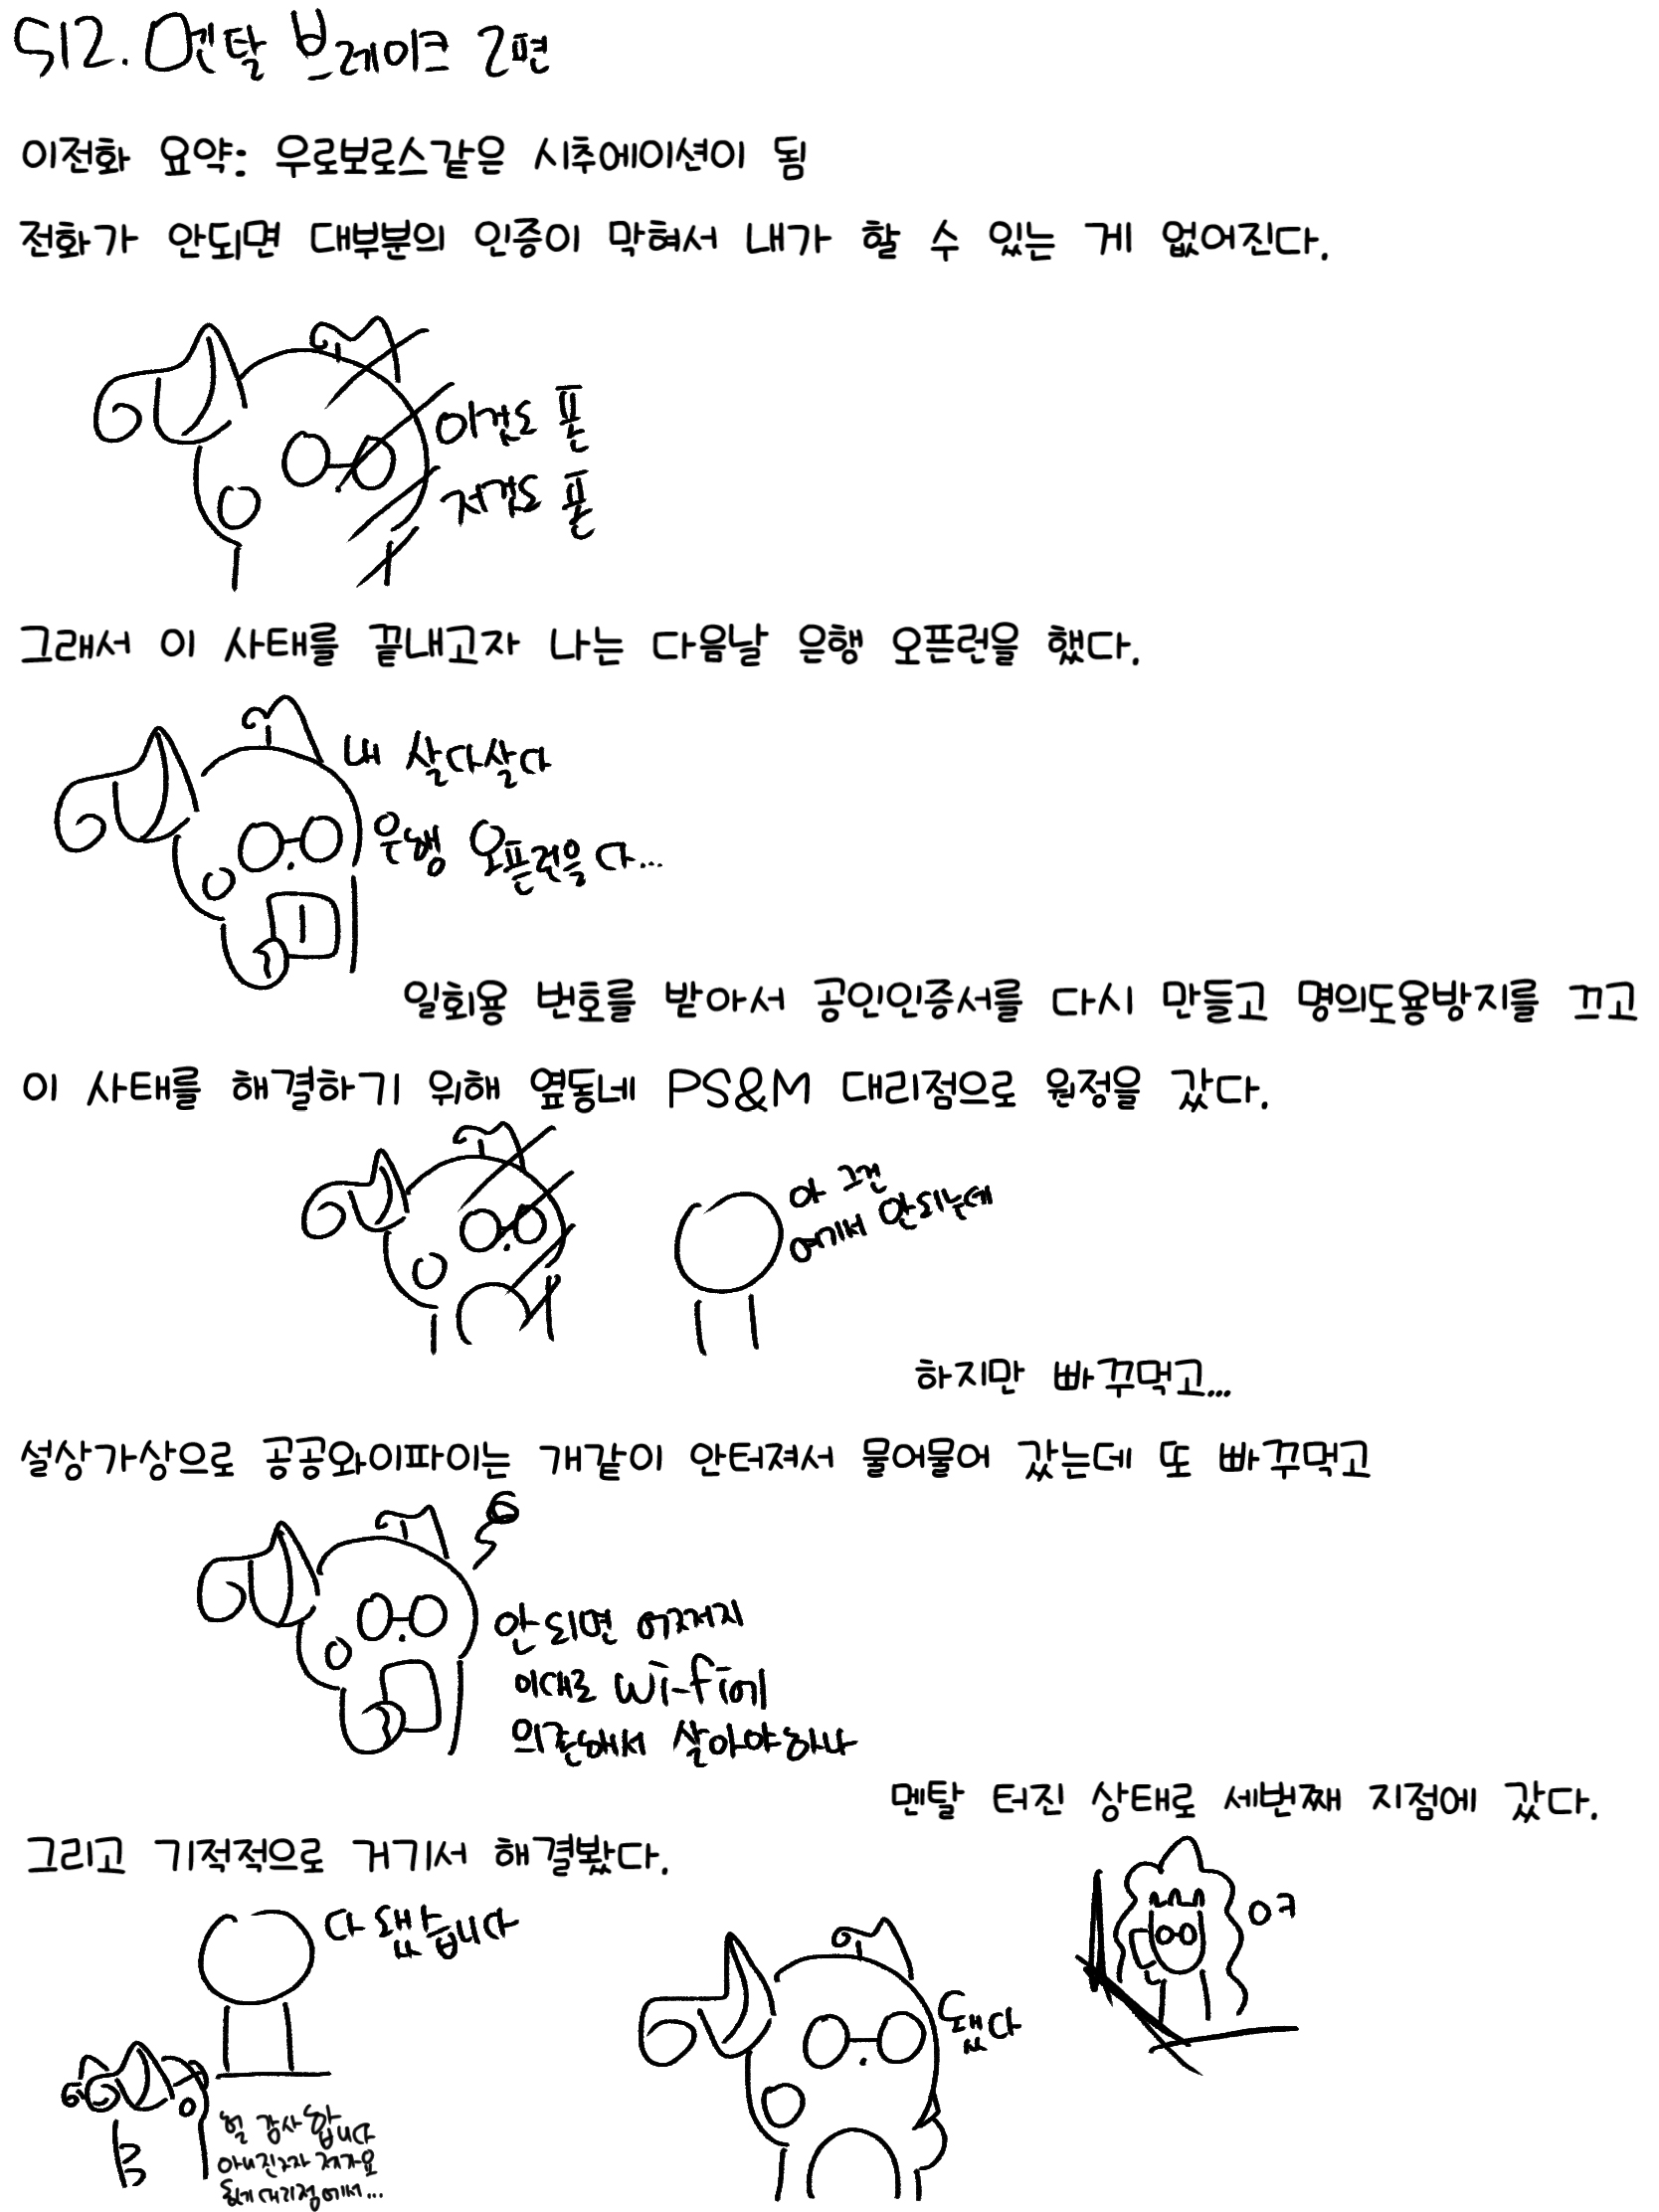 512. 멘탈 브레이크 2편
이전화 요약: 우로보로스같은 시추에이션이 됨
전화가 안되면 대부분의 인증이 막혀서 내가 할 수 있는 게 없어진다.
이것도 폰
저것도 폰
그래서 이 사태를 끝내고자 나는 다음날 은행 오픈런을 했다.
내 살다살다
은행 오픈런을 다...
일회용 번호를 받아서 공인인증서를 다시 만들고 명의도용방지를 끄고
이 사태를 해결하기 위해 옆동네 PS&M 대리점으로 원정을 갔다.
아 그건
여기서 안되는데
하지만 빠꾸먹고...
설상가상으로 공공와이파이는 개같이 안터져서 물어물어 갔는데 또 빠꾸먹고
안되면 어쩌지
이대로 Wi-fi에
의존해서 살아야하나
멘탈 터진 상태로 세번째 지점에 갔다.
그리고 기적적으로 거기서 해결봤다.
다 됐습니다
헐 감사합니다
아니진짜 제가요
대리점에서...
됐다
ㅇㅋ